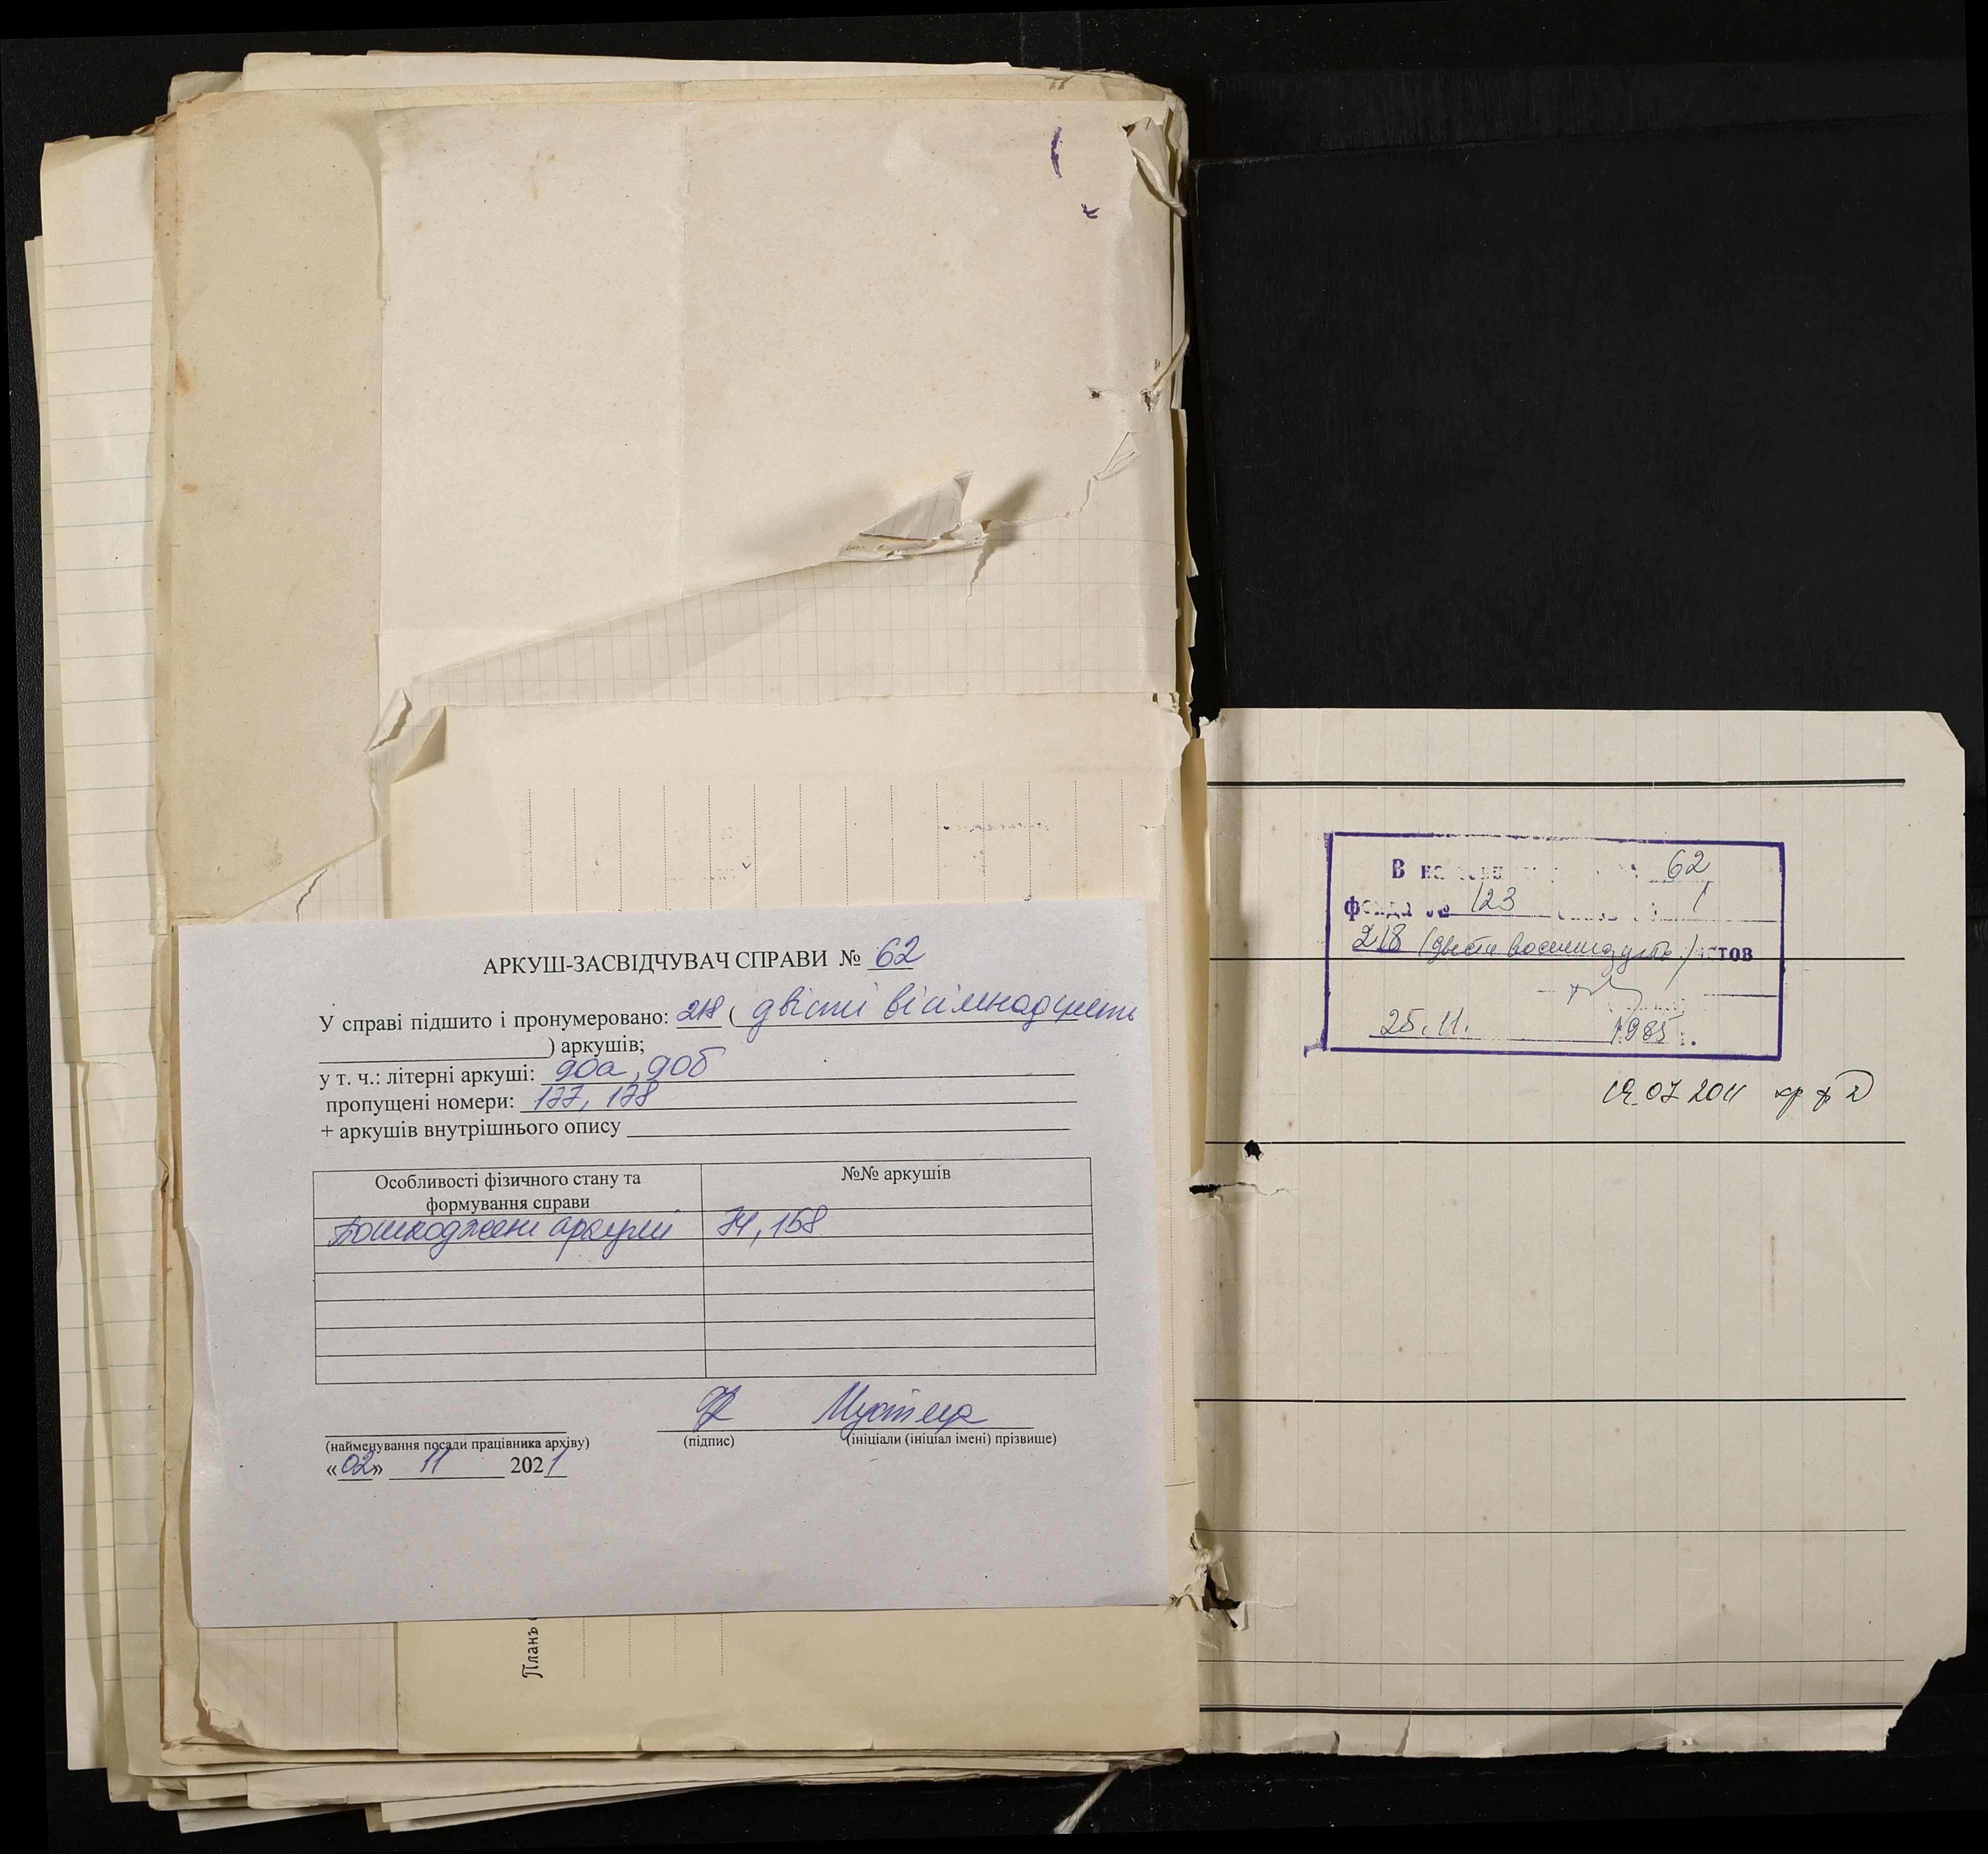 АРКУШ-ЗАСВІДЧУВАЧ СПРАВИ № 62
У справі підшито і пронумеровано: 218 ( двісті вісімнадцять
) аркушів;
у т. ч.: літерні аркуші: 90а, 90б
пропущені номери: 177, 178
+ аркушів внутрішнього опису
Особливості фізичного стану та формування справи
№№ аркушів
Пошкоджені аркуші 74, 158
(найменування посади працівника архіву) (підпис) (ініціали (ініціал імені) прізвище)
«02» 11 2021
Планъ
В 62
фонда № 123 1
218 (двести восемнадцать) листов
25.11. 1985 г.
19.07 2011